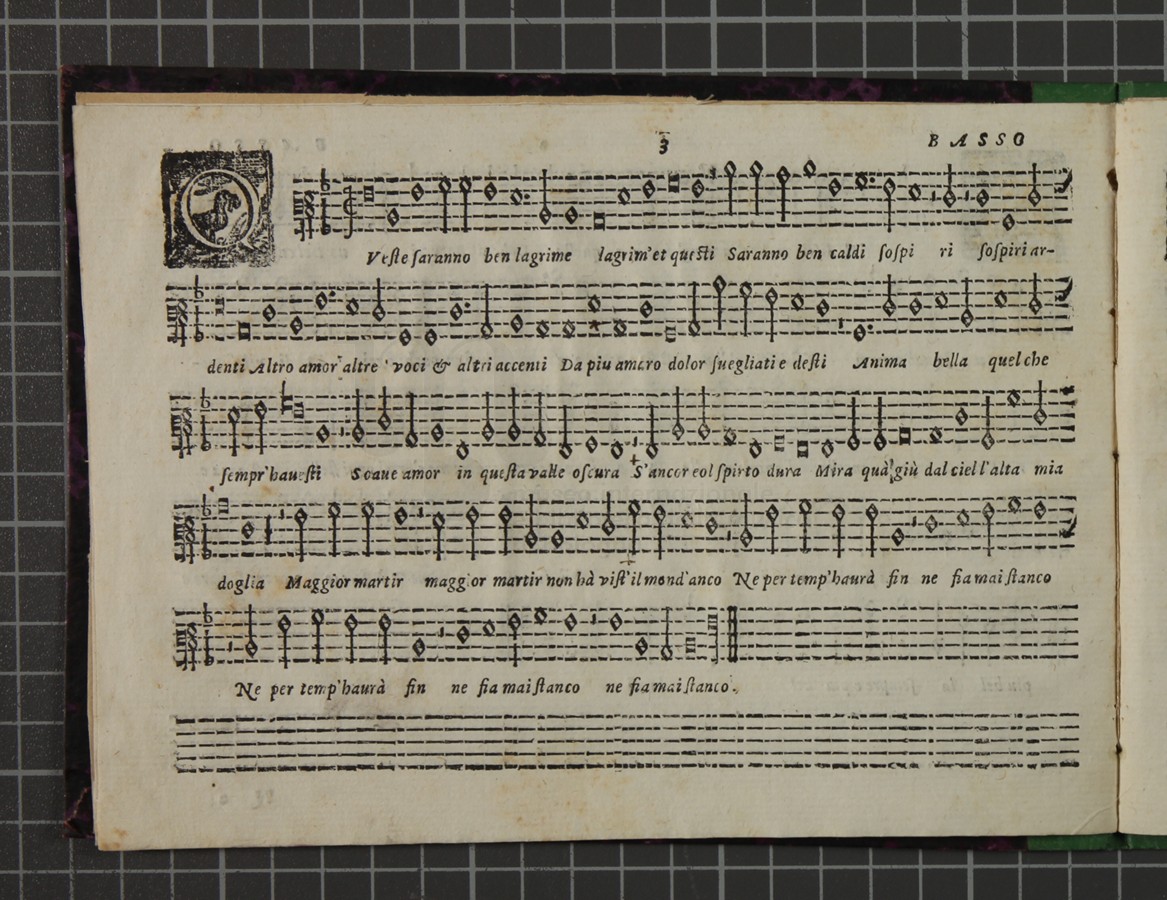 3
BASSO
QVeste saranno ben lagrime lagrim'et questi Saranno ben caldi sospi ri sospiri ar-
denti Altro amor altre voci & altri accenti Da piu amaro dolor suegliati e desti Anima bella quel che
sempr'hauesti Soaue amor in questa valle oscura S'ancor eol spirto dura Mira quà giù dal ciel l'alta mia
doglia Maggior martir maggior martir non hà vist'il mond'anco Ne per temp'haurà fin ne fia mai stanco
Ne per temp'haurà fin ne fia mai stanco ne fia mai stanco.